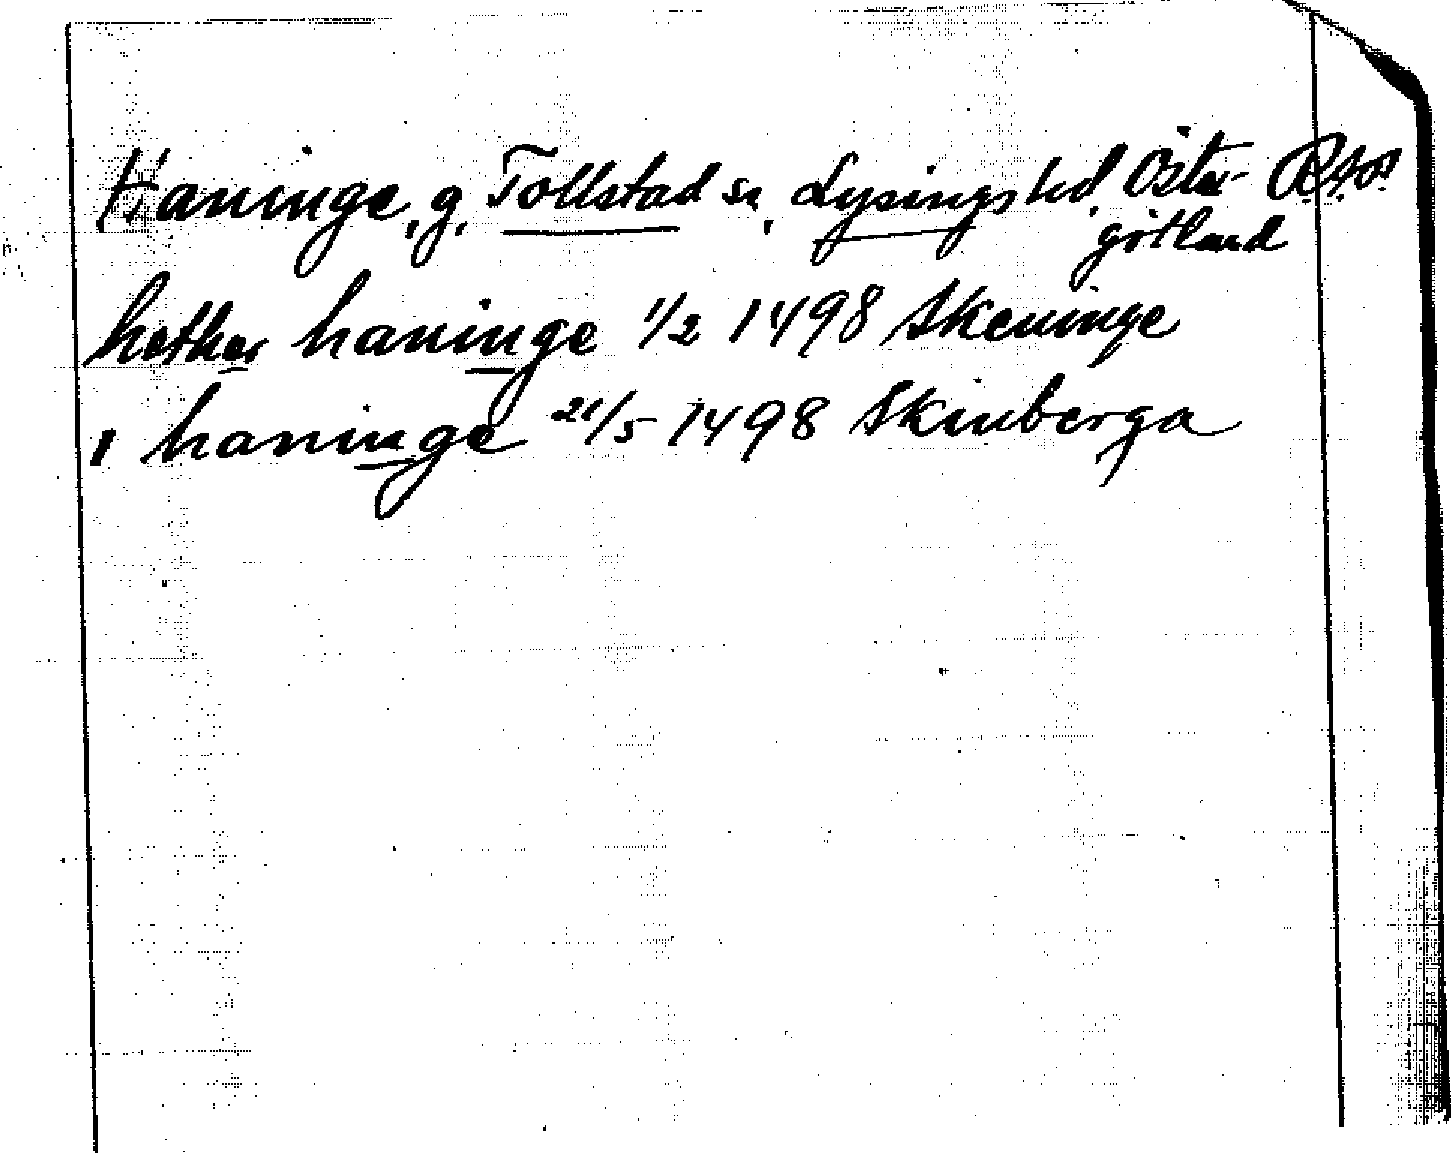 Haninge, g, Tollstad sn, Lysings hd, Öster- RAp
götland
hether haninge 1/2 1498 Skeninge
i haninge 21/5 1498 Skenberga